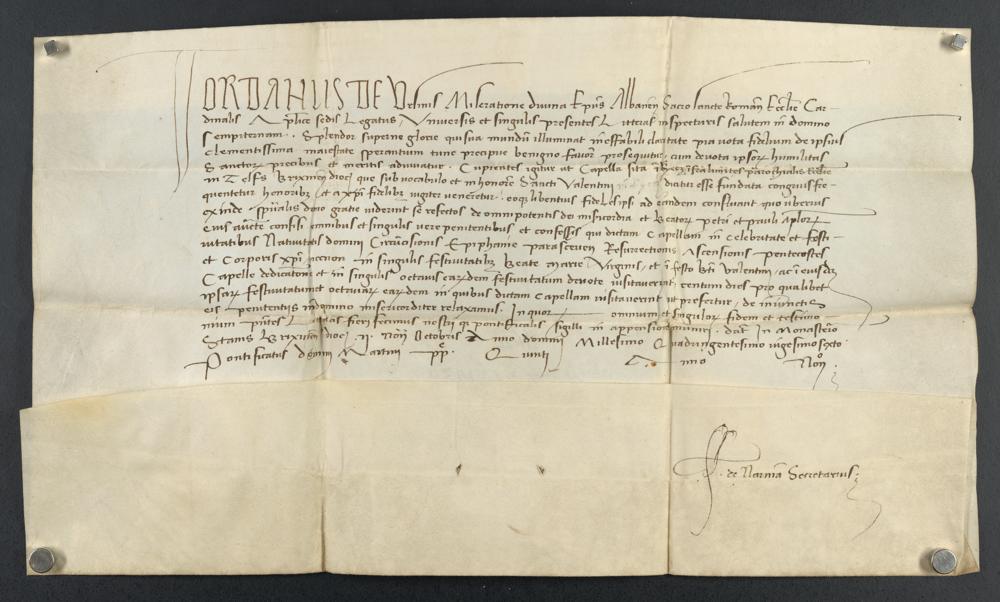 IORDANUS DE Ursinis Miseratione divina Ep̄us Albaneñ Sacrosancte Romañ Ecclie Car-
dinalis Ap̄lice sedis Legatus, Universis et singulis presentes Litteras inspecturis salutem in domino
sempiternam. Splendor superne glorie qui sua mundū illuminat ineffabili claritate pia vota fidelium de ipsius
clementissima maiestate sperantium tunc precipue benigno favor̄ prosequitur, cum devota ipsorꝝ humilitas
Sanctorꝝ precibus et meritis adiuvatur. Cupientes igitur ut Capella sita infra limites parochialis Ecclie
in Telfs Brixineñ dioc̄ que sub vocabulo et in honorē Sancti Valentini dicitur esse fundata congruis fre-
quentetur honoribꝫ, et a xp̄i fidelibꝫ iugiter veneretur. eoqꝫ libentius fideles ipsi ad eandem confluant quo uberius
exinde sp̄ualis dono gratie viderint se refectos de omnipotentis dei misericordia et Beatorꝝ Petri et Pauli Ap̄lorꝝ
eius auct̄te confisi omnibus et singulis vere penitentibus et confessis qui dictam Capellam in celebritate et festi-
vitatibus Nativitatis domini Circūcisionis Epiphanie parasceven Resurrectionis Ascensionis Penterostes
et Corporis xp̄i, necnon in singulis festivitatibꝫ Beate Marie Virginis, et ī festo bt̄i Valentini, ac ī eiusdē
Capelle dedicatione et in singulis octavis earꝫdem festivitatum devote visitaverint, centum dies pro qualibet
ipsarꝝ festivitatum et octavarꝝ earꝫdem in quibus dictam Capellam visitaverint ut prefertur, de iniunctis
eis penitentiis in domino misericorditer relaxamus. In quorꝝ omnium et singulorꝝ fidem et testimo-
nium p̄ntes Litteras fieri fecimus nostri qꝫ pontificalis sigilli in appensione muniri. dat̄ In Monasterio
Stams Brixineñ dioc̄. II. Noñ Octobris Anno domini Millesimo Quadringentesimo vigesimosexto.
Pontificatus domini Martini pp̄. Quinti Anno Noñ.
de Narnia Secretarius: